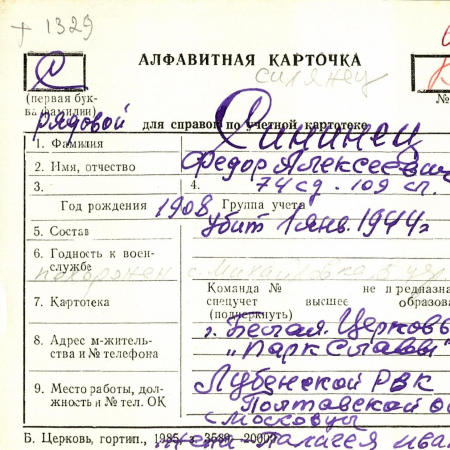 + 1329
АЛФАВИТНАЯ КАРТОЧКА
Х
(первая бук-
ва фамилии)
№
рядовой
для справок по учетной картотеке
1. Фамилия
Хининец
2. Имя, отчество
Федор Алексеевич
3.
4.
74 сд. 109 сп.
Год рождения 1908 Группа учета
5. Состав
убит 1 янв. 1944г
6. Годность к воен-
службе
похоронен с. Михайловка
7. Картотека
Команда № не предназна
спецучет высшее образова
(подчеркнуть)
г. Белая Церковь
8. Адрес м-житель-
ства и № телефона
"Парк Славы"
9. Место работы, дол-
жность и № тел. ОК
Лубенской РВК
Полтавской о
с Московцы
Б. Церковь, гортип., 1985, з. 3589—20000
жена Палагея Иван